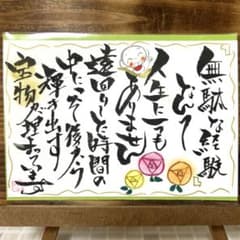 無駄な経験
なんて
人生に一つも
ありません
遠回りした時間の
中にこそ後から
輝き出す
宝物が埋まっています